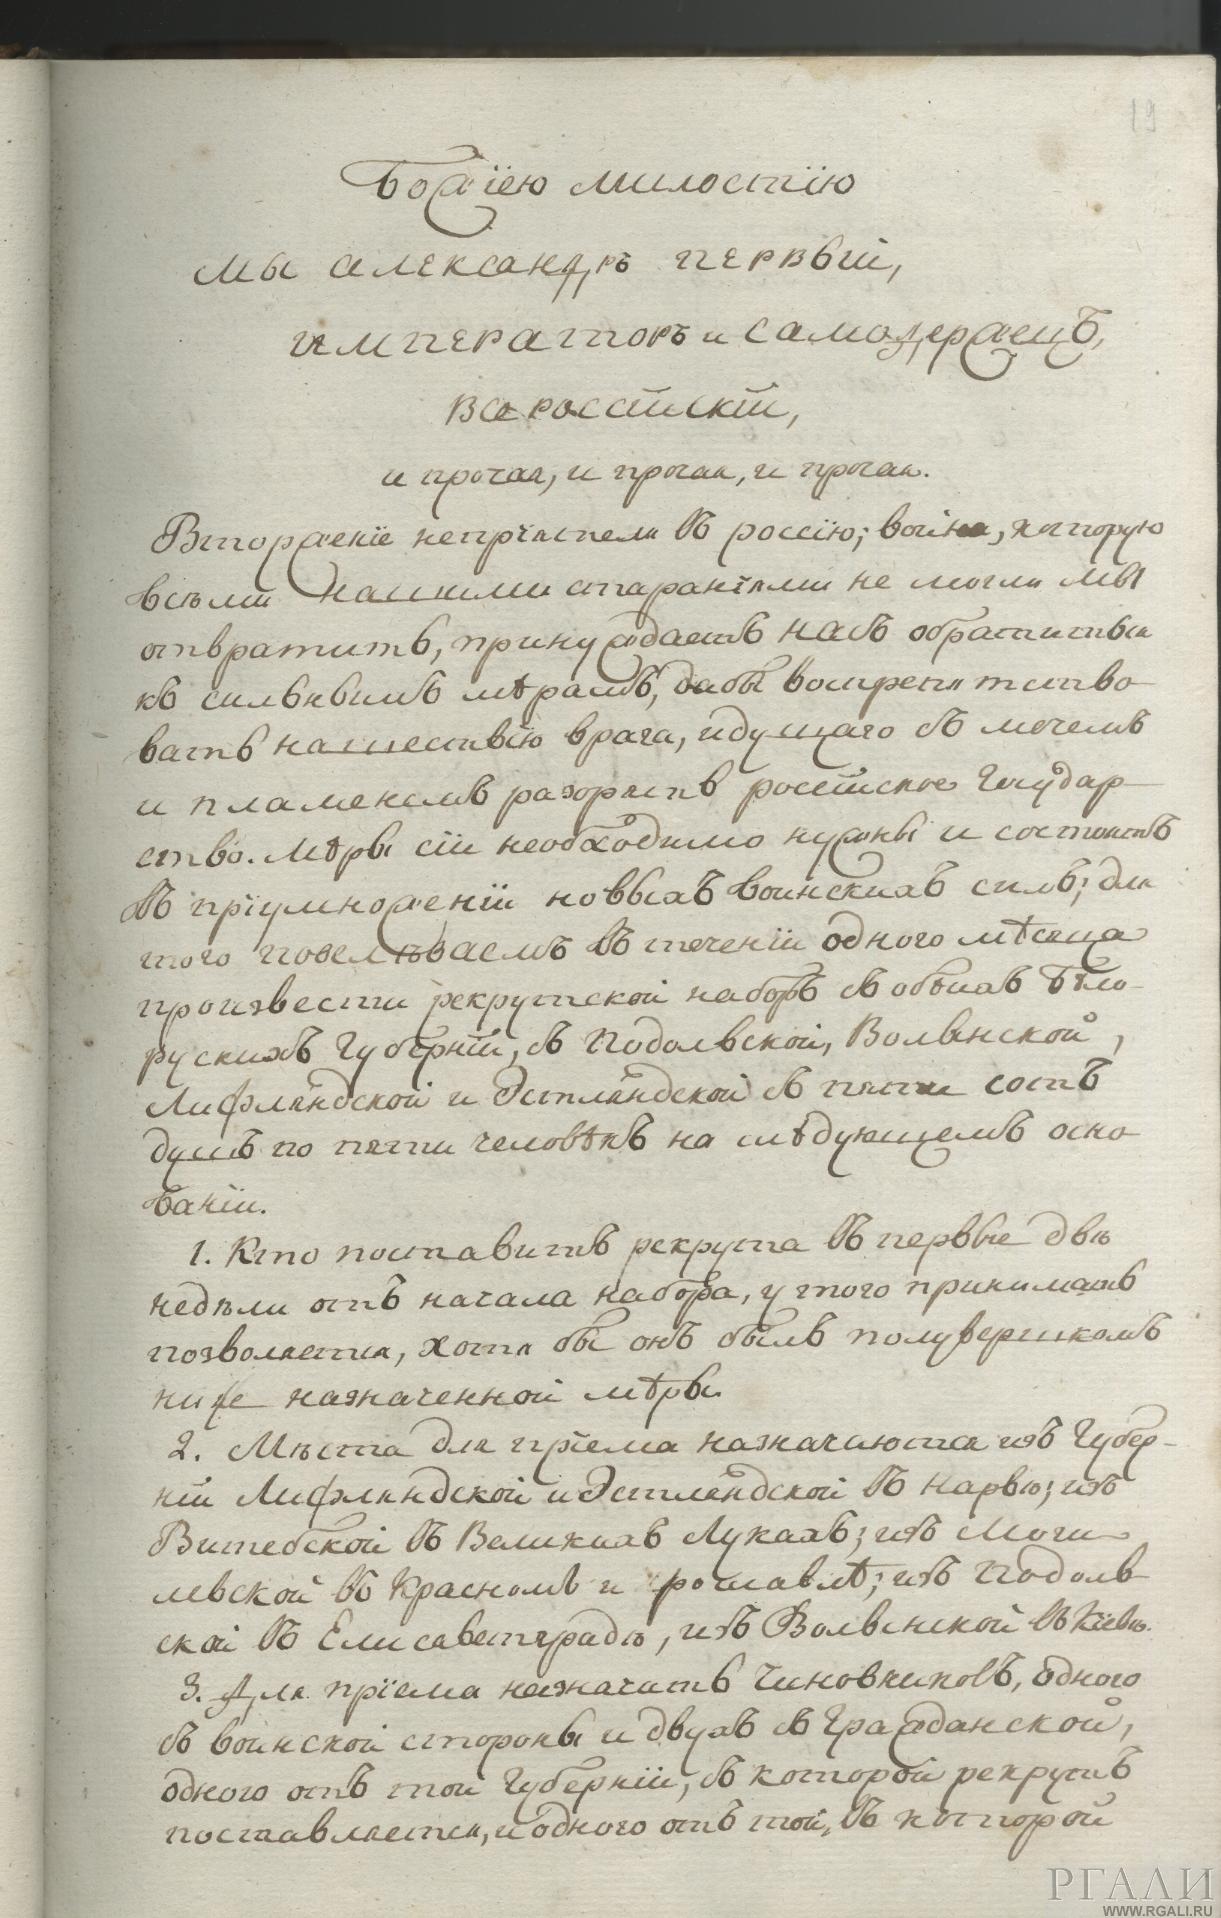 19
Божіею милостію
мы александръ первый,
императоръ и самодержецъ,
всероссійскій,
и прочая, и прочая, и прочая.
Вторженіе непріятеля въ россію; война, которую
всѣми нашими стараніями не могли мы
отвратить, принуждаетъ насъ обратиться
къ сильнымъ мѣрамъ, дабы воспрепятство-
вать нашествію врага, идущаго съ мечемъ
и пламенемъ разорять россійское Государ-
ство. Мѣры сіи необходимо нужны и состоятъ
въ пріумноженіи новыхъ воинскихъ силъ; для
того повелѣваемъ въ теченіи одного мѣсяца
произвести рекрутской наборъ съ обѣихъ Бѣло-
рускихъ Губерній, съ Подольской, Волынской,
Лифляндской и Эстляндской съ пяти сотъ
душъ по пяти человѣкъ на слѣдующемъ осно
ваніи.
1. Кто поставитъ рекрута въ первые двѣ
недѣли отъ начала набора, у того принимать
позволяется, хотя бы онъ былъ полувершкомъ
ниже назначенной мѣры.
2. Мѣста для пріема назначаются изъ Губер-
ній Лифляндской и Эстляндской въ Нарвѣ; изъ
Витебской въ Великихъ Лукахъ; изъ Моги
левской въ Красномъ и рославлѣ; изъ Подоль-
ской въ Елисаветградѣ, изъ Волынской въ Кіевѣ.
3. Для пріема назначить Чиновниковъ, одного
съ воинской стороны и двухъ съ Гражданской,
одного отъ той Губерніи, съ которой рекрутъ
поставляется, и одного отъ той, въ которой
РГАЛИ
WWW.RGALI.RU